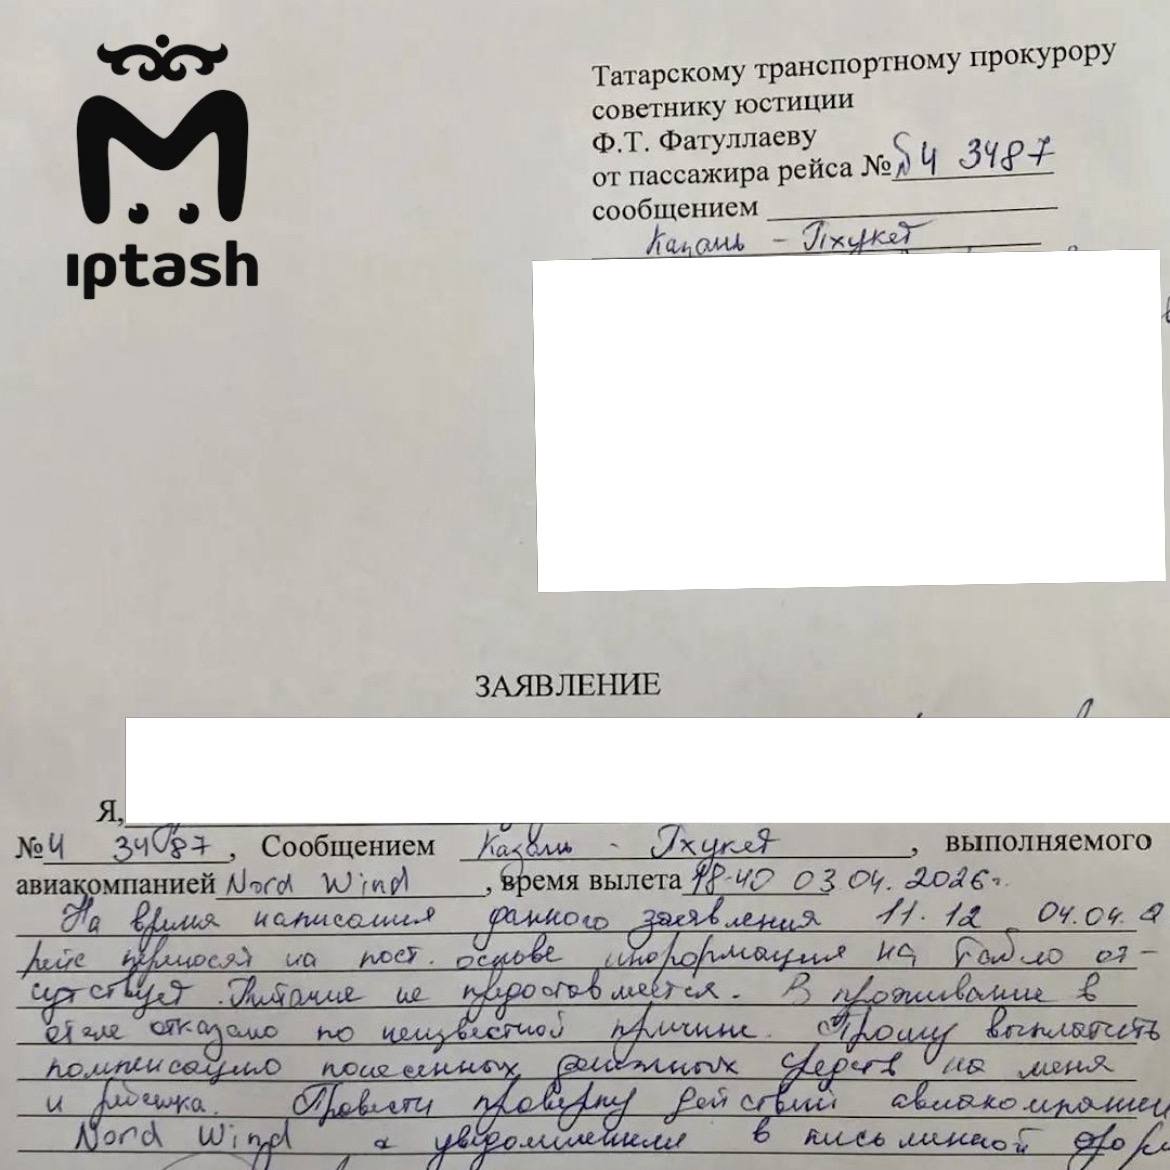 ıptash
Татарскому транспортному прокурору
советнику юстиции
Ф.Т. Фатуллаеву
от пассажира рейса № N4 3487
сообщением
Казань - Пхукет
ЗАЯВЛЕНИЕ
Я,
№ 4 3487, Сообщением Казань - Пхукет, выполняемого
авиакомпанией Nord Wind, время вылета 18-40 03.04.2026г.
На время написания данного заявления 11.12 04.04.
рейс переносят на пост. основе информация на табло от-
сутствует. Питание не предоставляется. В проживание в
отеле отказано по неизвестной причине. Прошу выплатить
компенсацию понесенных денежных средств на меня
и ребенка. Провести проверку действий авиакомпании
Nord Wind с уведомлением в письменной фор